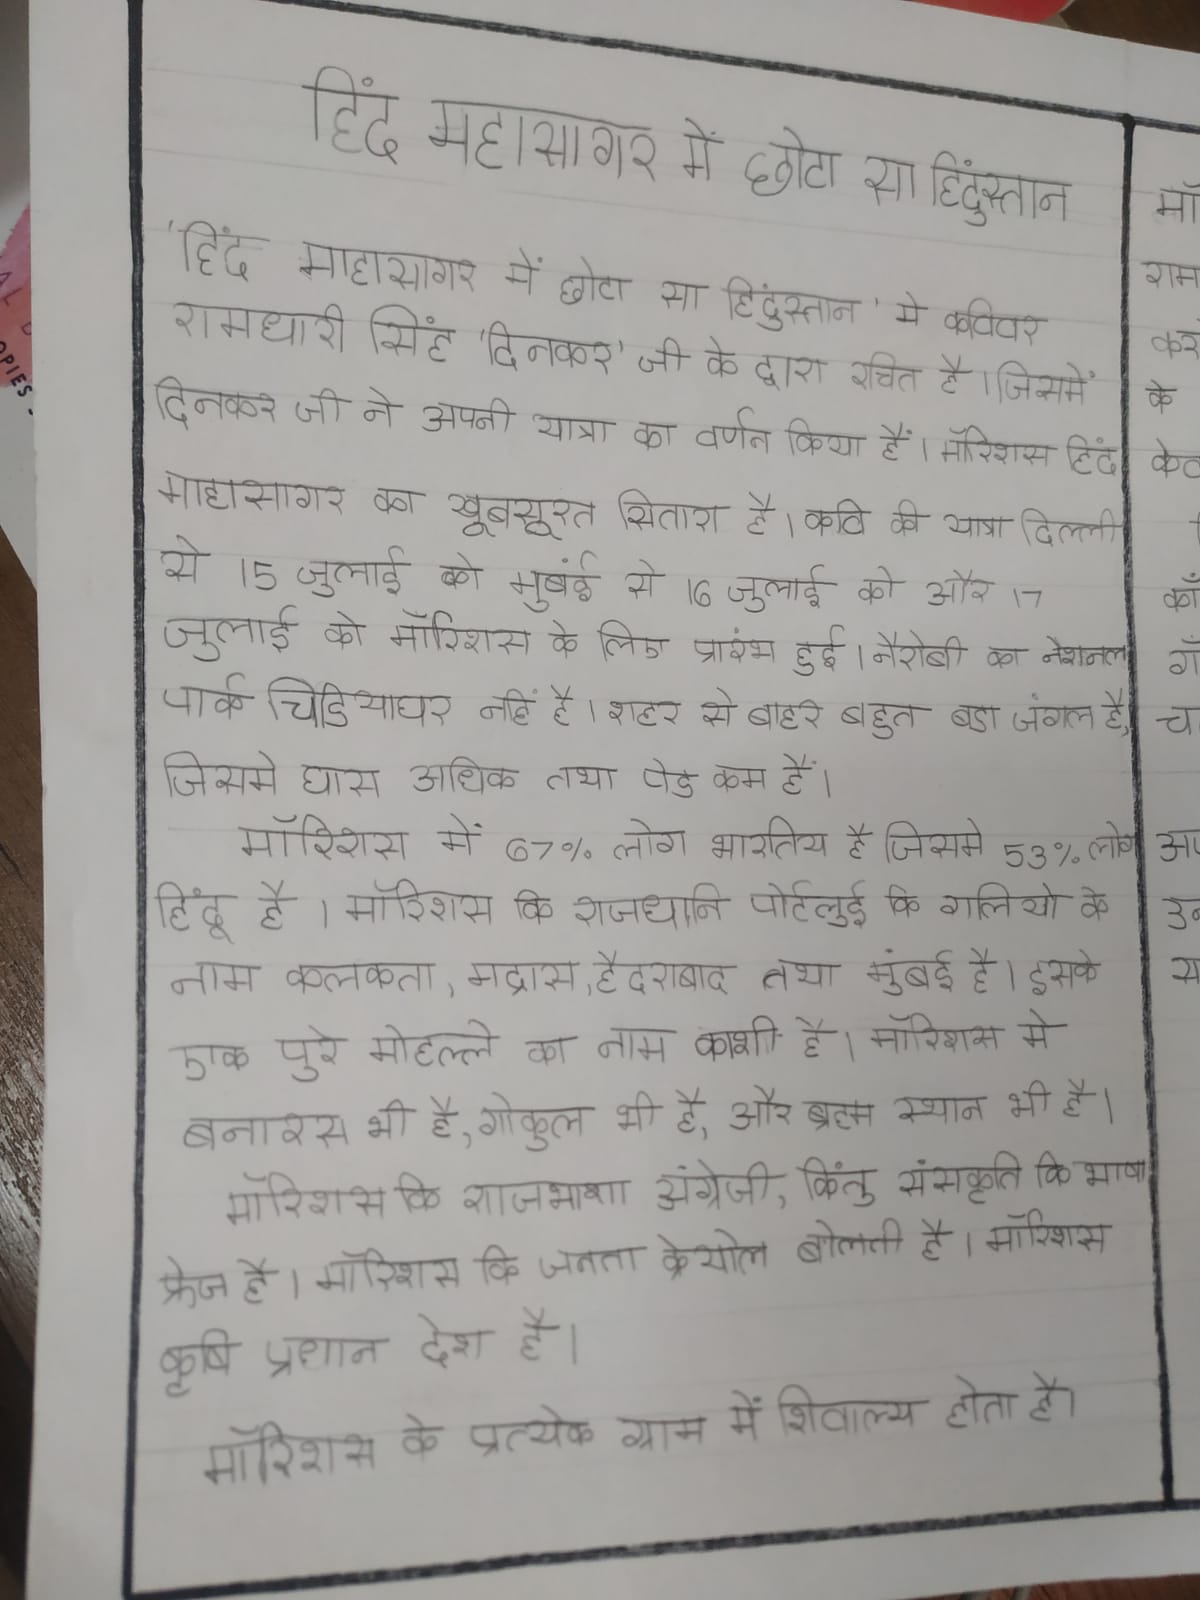 हिंद महासागर में छोटा सा हिंदुस्तान
'हिंद माहासागर में छोटा सा हिंदुस्तान' मे कविवर
रामधारी सिंह 'दिनकर' जी के द्वारा रचित है। जिसमें
दिनकर जी ने अपनी यात्रा का वर्णन किया हैं। मॉरिशस हिंद
माहासागर का खूबसूरत सितारा है। कवि की यात्रा दिल्ली
से 15 जुलाई को मुबंई से 16 जुलाई को और 17
जुलाई को मॉरिशस के लिए प्रारंभ हुई। नैरोबी का नेशनल
पार्क चिडियाघर नहिं है। शहर से बाहर बहुत बडा जंगल है,
जिसमे घास अधिक तथा पेड कम हैं।
मॉरिशस में 67% लोग भारतिय है जिसमे 53% लोग
हिंदू है। मॉरिशस कि राजधानि पोर्टलुई कि गलियो के
नाम कलकता, मद्रास, हैदराबाद तथा मुंबई है। इसके
एक पुरे मोहल्ले का नाम काशी है। मॉरिशस मे
बनारस भी है, गोकुल भी है, और ब्रहम स्थान भी है।
मॉरिशस कि राजभाशा अंग्रेजी, किंतु संसकृति कि भाषा
फ्रेज है। मॉरिशस कि जनता क्रेयोल बोलती है। मॉरिशस
कृषि प्रधान देश है।
मॉरिशस के प्रत्येक ग्राम में शिवाल्य होता है।